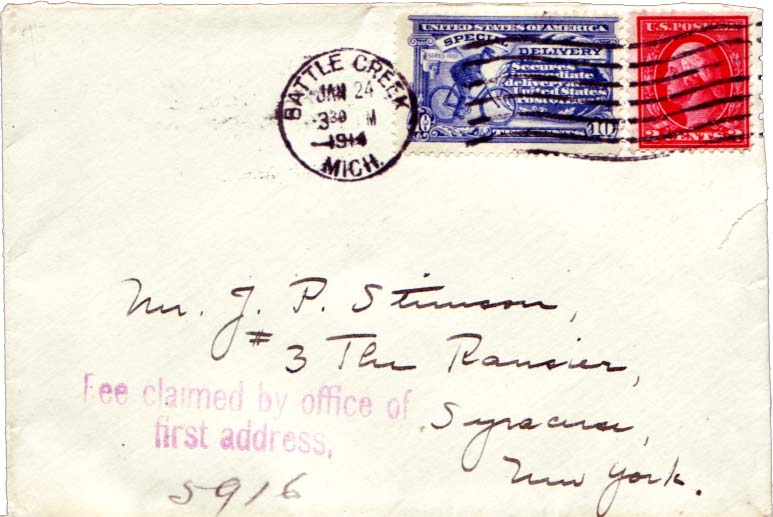 UNITED STATES OF AMERICA
SPECIAL DELIVERY
Secures
delivery
United States
10 10
U.S. POSTAGE
2 CENTS 2
BATTLE CREEK
JAN 24
3 30 M
1914
MICH.
Mr. J. P. Stimson,
# 3 The Ransier,
Syracuse,
New York.
Fee claimed by office of
first address,
5916